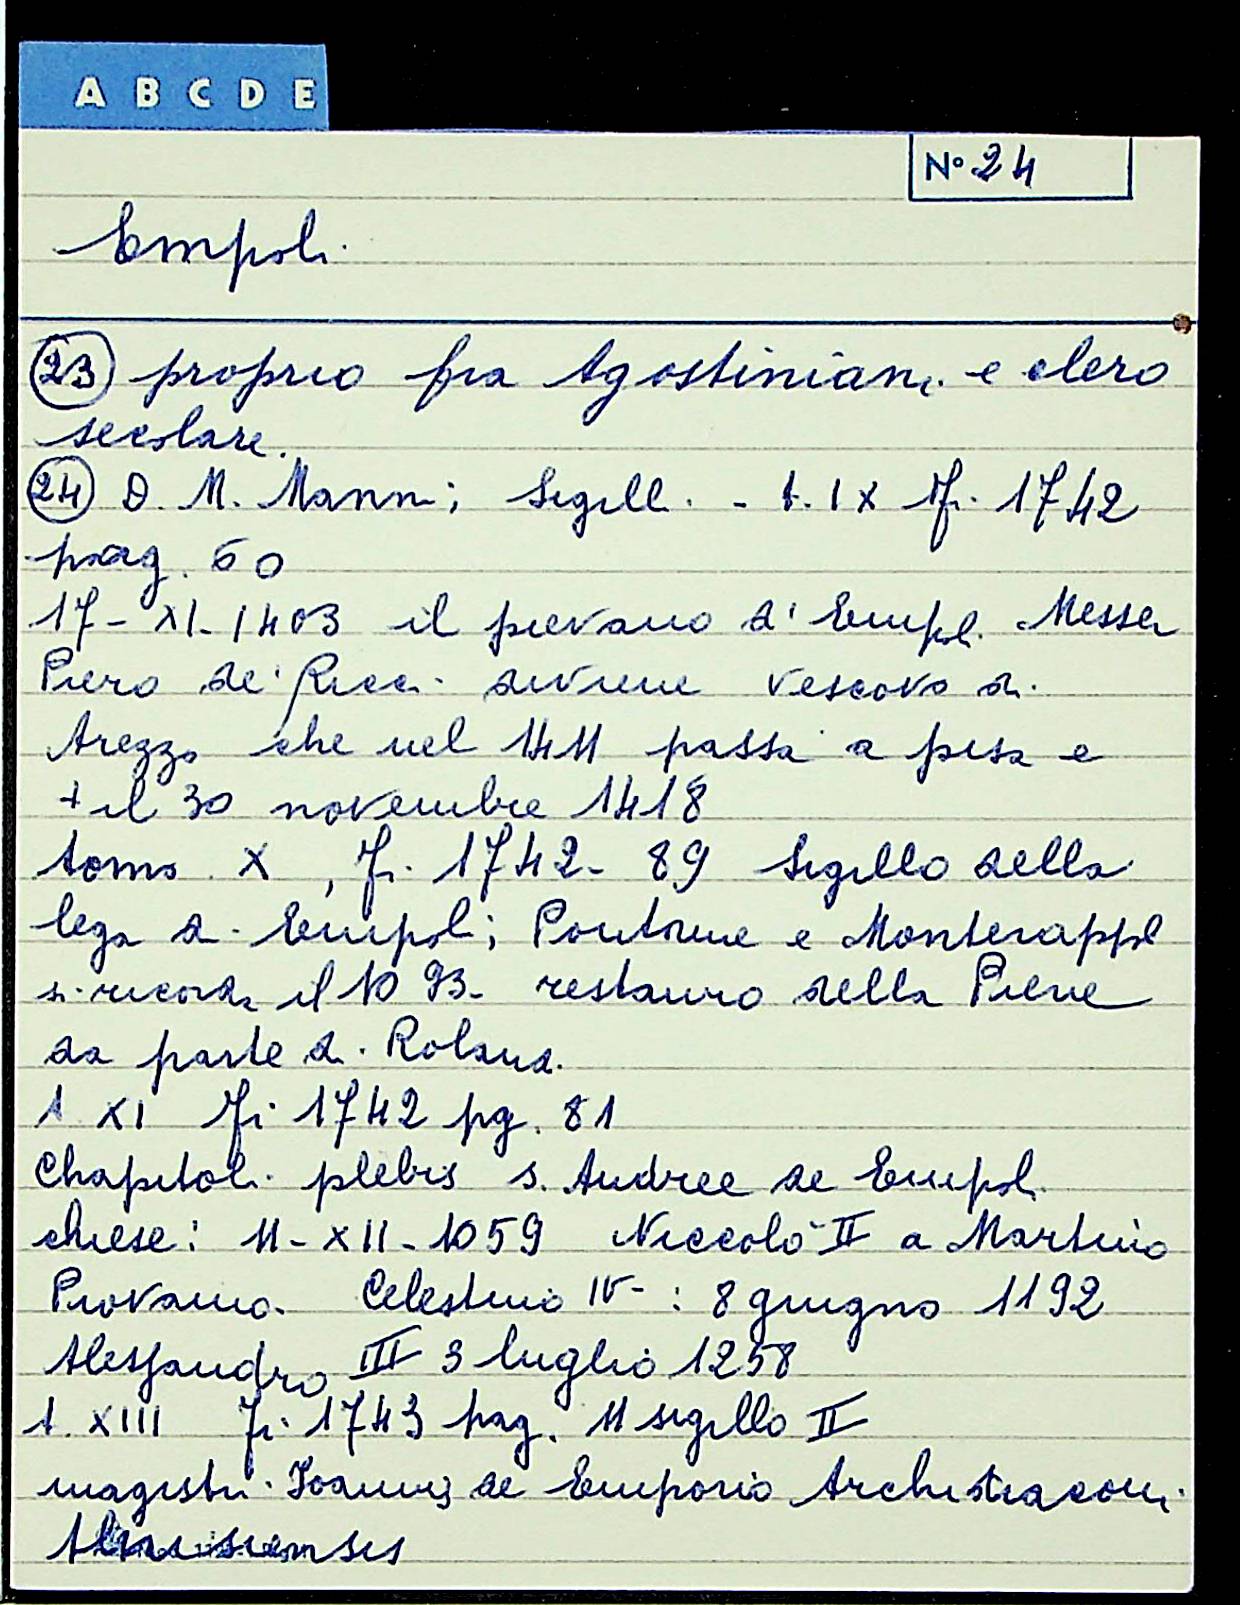 A B C D E
N° 24
Empoli
23 proprio fra Agostiniani e clero
secolare.
24 D. M. Manni; Sigilli - t. IX Fi. 1742
pag. 60
17-XI-1403 il pievano d'Empoli Messer
Piero de' Ricci divenne vescovo di
Arezzo che nel 1411 passa a pisa e
+ il 30 novembre 1418
tomo X, Fi. 1742- 89 Sigillo della
lega di Empoli; Pontorme e Monterappoli
si ricorda il 1093- restauro della Pieve
da parte di Rolando
t. XI Fi. 1742 pg. 81
Chapitoli plebis s. Andree de Empoli
chiese: 11-XII-1059 Niccolò II a Martino
Provamo. Celestino IV- : 8 giugno 1192
Alessandro III 3 luglio 1258
t. XIII Fi. 1743 pag. 11 sigillo II
magistri Ioannis de Emporio Archidiaconi